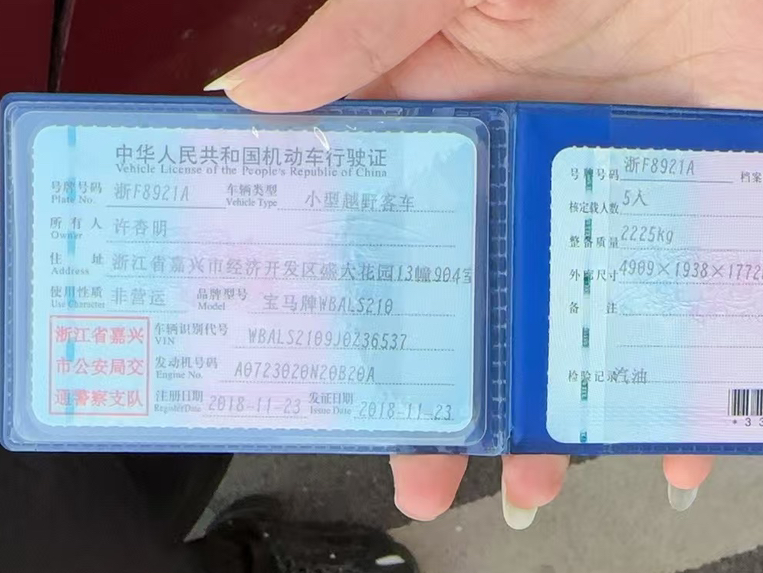 中华人民共和国机动车行驶证
Vehicle License of the People's Republic of China
号牌号码 浙F8921A 车辆类型 小型越野客车
Plate No. Vehicle Type
所有人 许香明
Owner
住址 浙江省嘉兴市经济开发区盛大花园13幢904室
Address
使用性质 非营运 品牌型号 宝马牌WBALS210
Use Character Model
浙江省嘉兴
市公安局交
通警察支队
车辆识别代号 WBALS2109J0Z36537
VIN
发动机号码 A0723020N20B20A
Engine No.
注册日期 2018-11-23 发证日期 2018-11-23
Register Date Issue Date
号牌号码 浙F8921A 档案
核定载人数 5人
整备质量 2225kg
外廓尺寸 4909×1938×1772
备注
检验记录 汽油
*33